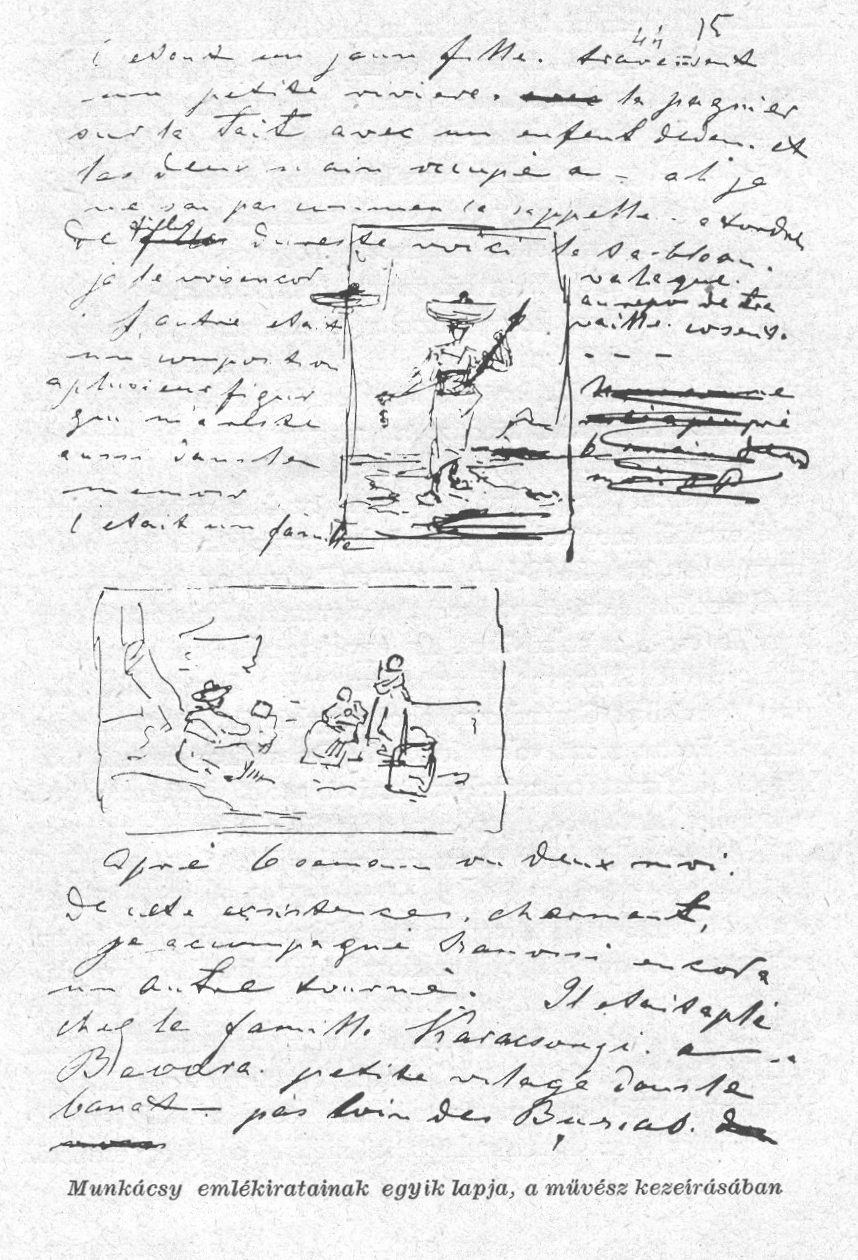 44 15
C etait un jaun fille. traversent
une petite riviere. avec le pagnier
sur la tait avec un enfent deden. et
las deux main occupé a - ah je
ne sai pas commen ca sappelle. a tordre
De filles Dureste voici le ta-bleau.
je le vois encor
valaque.
au repos de tra
vaille. cosent.
- - -
L autre etait
un composition
a plusieur figur
qui m'a reste
aussi dans la
memoir
C etait un famille
Apré 6 semain ou deux moi.
De cete existences, charmant,
je accompagné encora
un autre tourné. Il etait aplé
cheg le famill. Karacsongi. a
Beodra. petite vilage dans le
banat - pas loin des Buzias. de
Munkácsy emlékiratainak egyik lapja, a művész kezeírásában